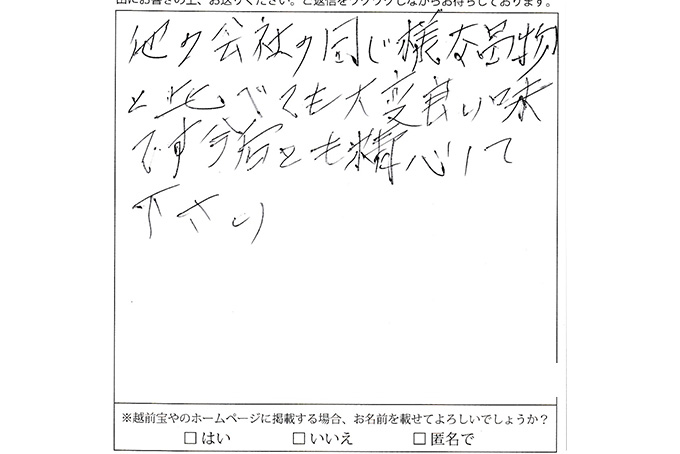 由にお書きの上、お送りください。ご返信をワクワクしながらお待ちしております。
他の会社の同じ様な品物
と比べても大変良い味
です今后とも精心して
下さい
※越前宝やのホームページに掲載する場合、お名前を載せてよろしいでしょうか？
□はい □いいえ □匿名で